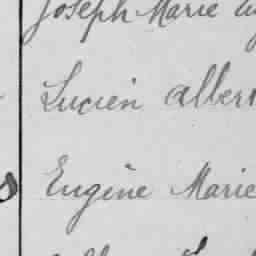 Joseph Marie
Lucien albert
Eugène Marie